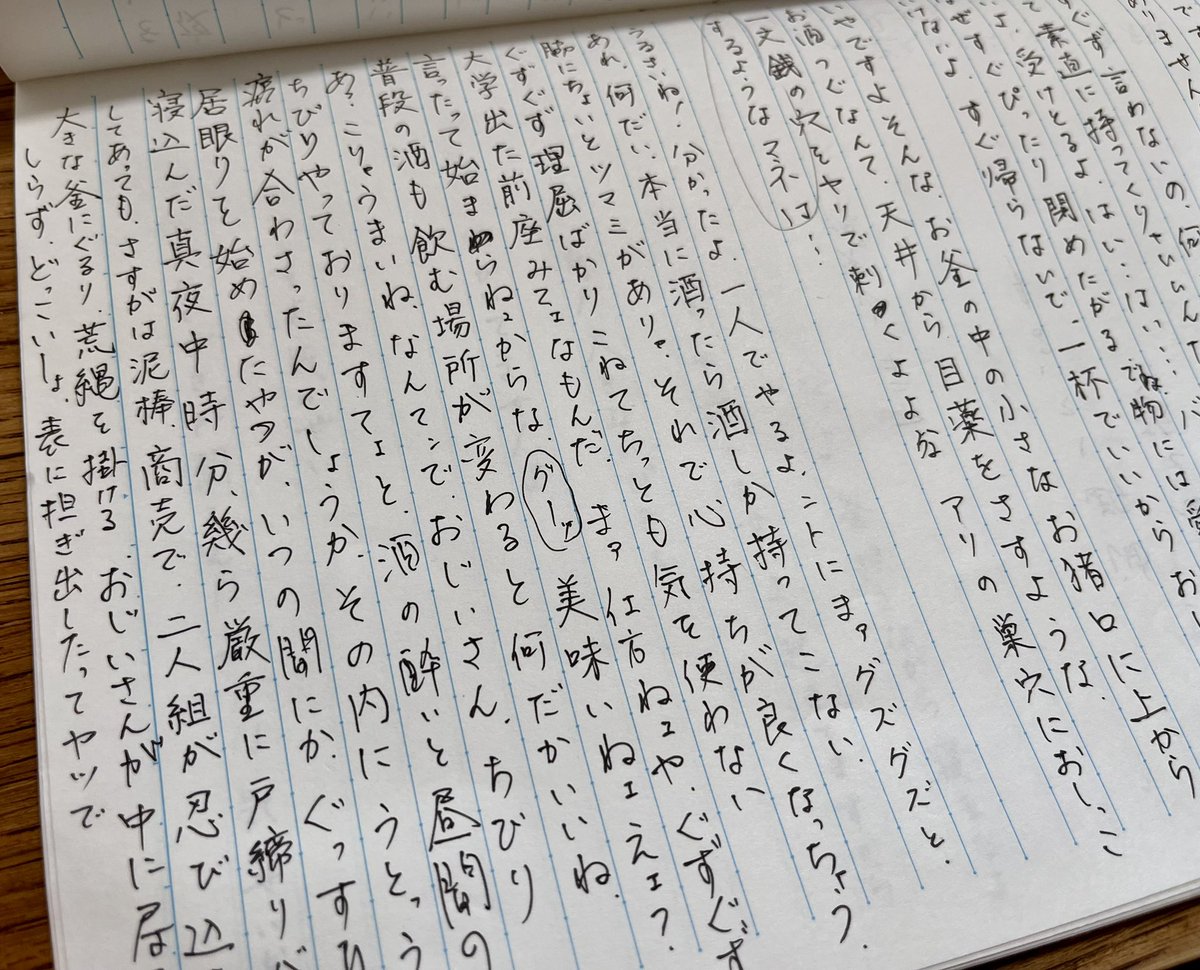 ありません
ぐず言わないの、何
て素直に持ってくりゃいいん
よ、受けとるよ、はい…はい…
ぜすぐぴったり閉めたがる
けないよ、すぐ帰らないで、一杯でいいから
やですよそんな、お釜の中の小さなお猪口に上から
お酒つぐなんて、天井から目薬をさすような、
一文銭の穴をヤリで刺くよな アリの巣穴におしっこ
するようなマネは…
うるさいね！分かったよ、一人でやるよ、ントにまァグズグズと、
あれ、何だい、本当に酒ったら酒しか持ってこない、
脇にちょいとツマミがありゃ、それで心持ちが良くなっちょう、
ぐずぐず理屈ばかりこねてちっとも気を使わない
大学出た前座みてェなもんだ。まァ仕方ねェや、ぐずぐず
言ったって始まらねェからな、グーッ 美味いねェえェ？
普段の酒も飲む場所が変わると何だかいいね、
あ？こりゃうまいね、なんてンで、おじいさん、ちびり
ちびりやっておりますてょと、酒の酔いと昼間の
疲れが合わさったんでしょうか、その内にうとうと
居眠りを始めたやつが、いつの間にか、ぐっすり
寝込んだ真夜中時分、幾ら厳重に戸締りが
してあっても、さすがは泥棒、商売で、二人組が忍び込
大きな釜にぐるり、荒縄を掛ける、おじいさんが中に居
しらず、どっこいしょ、表に担ぎ出したってヤツで